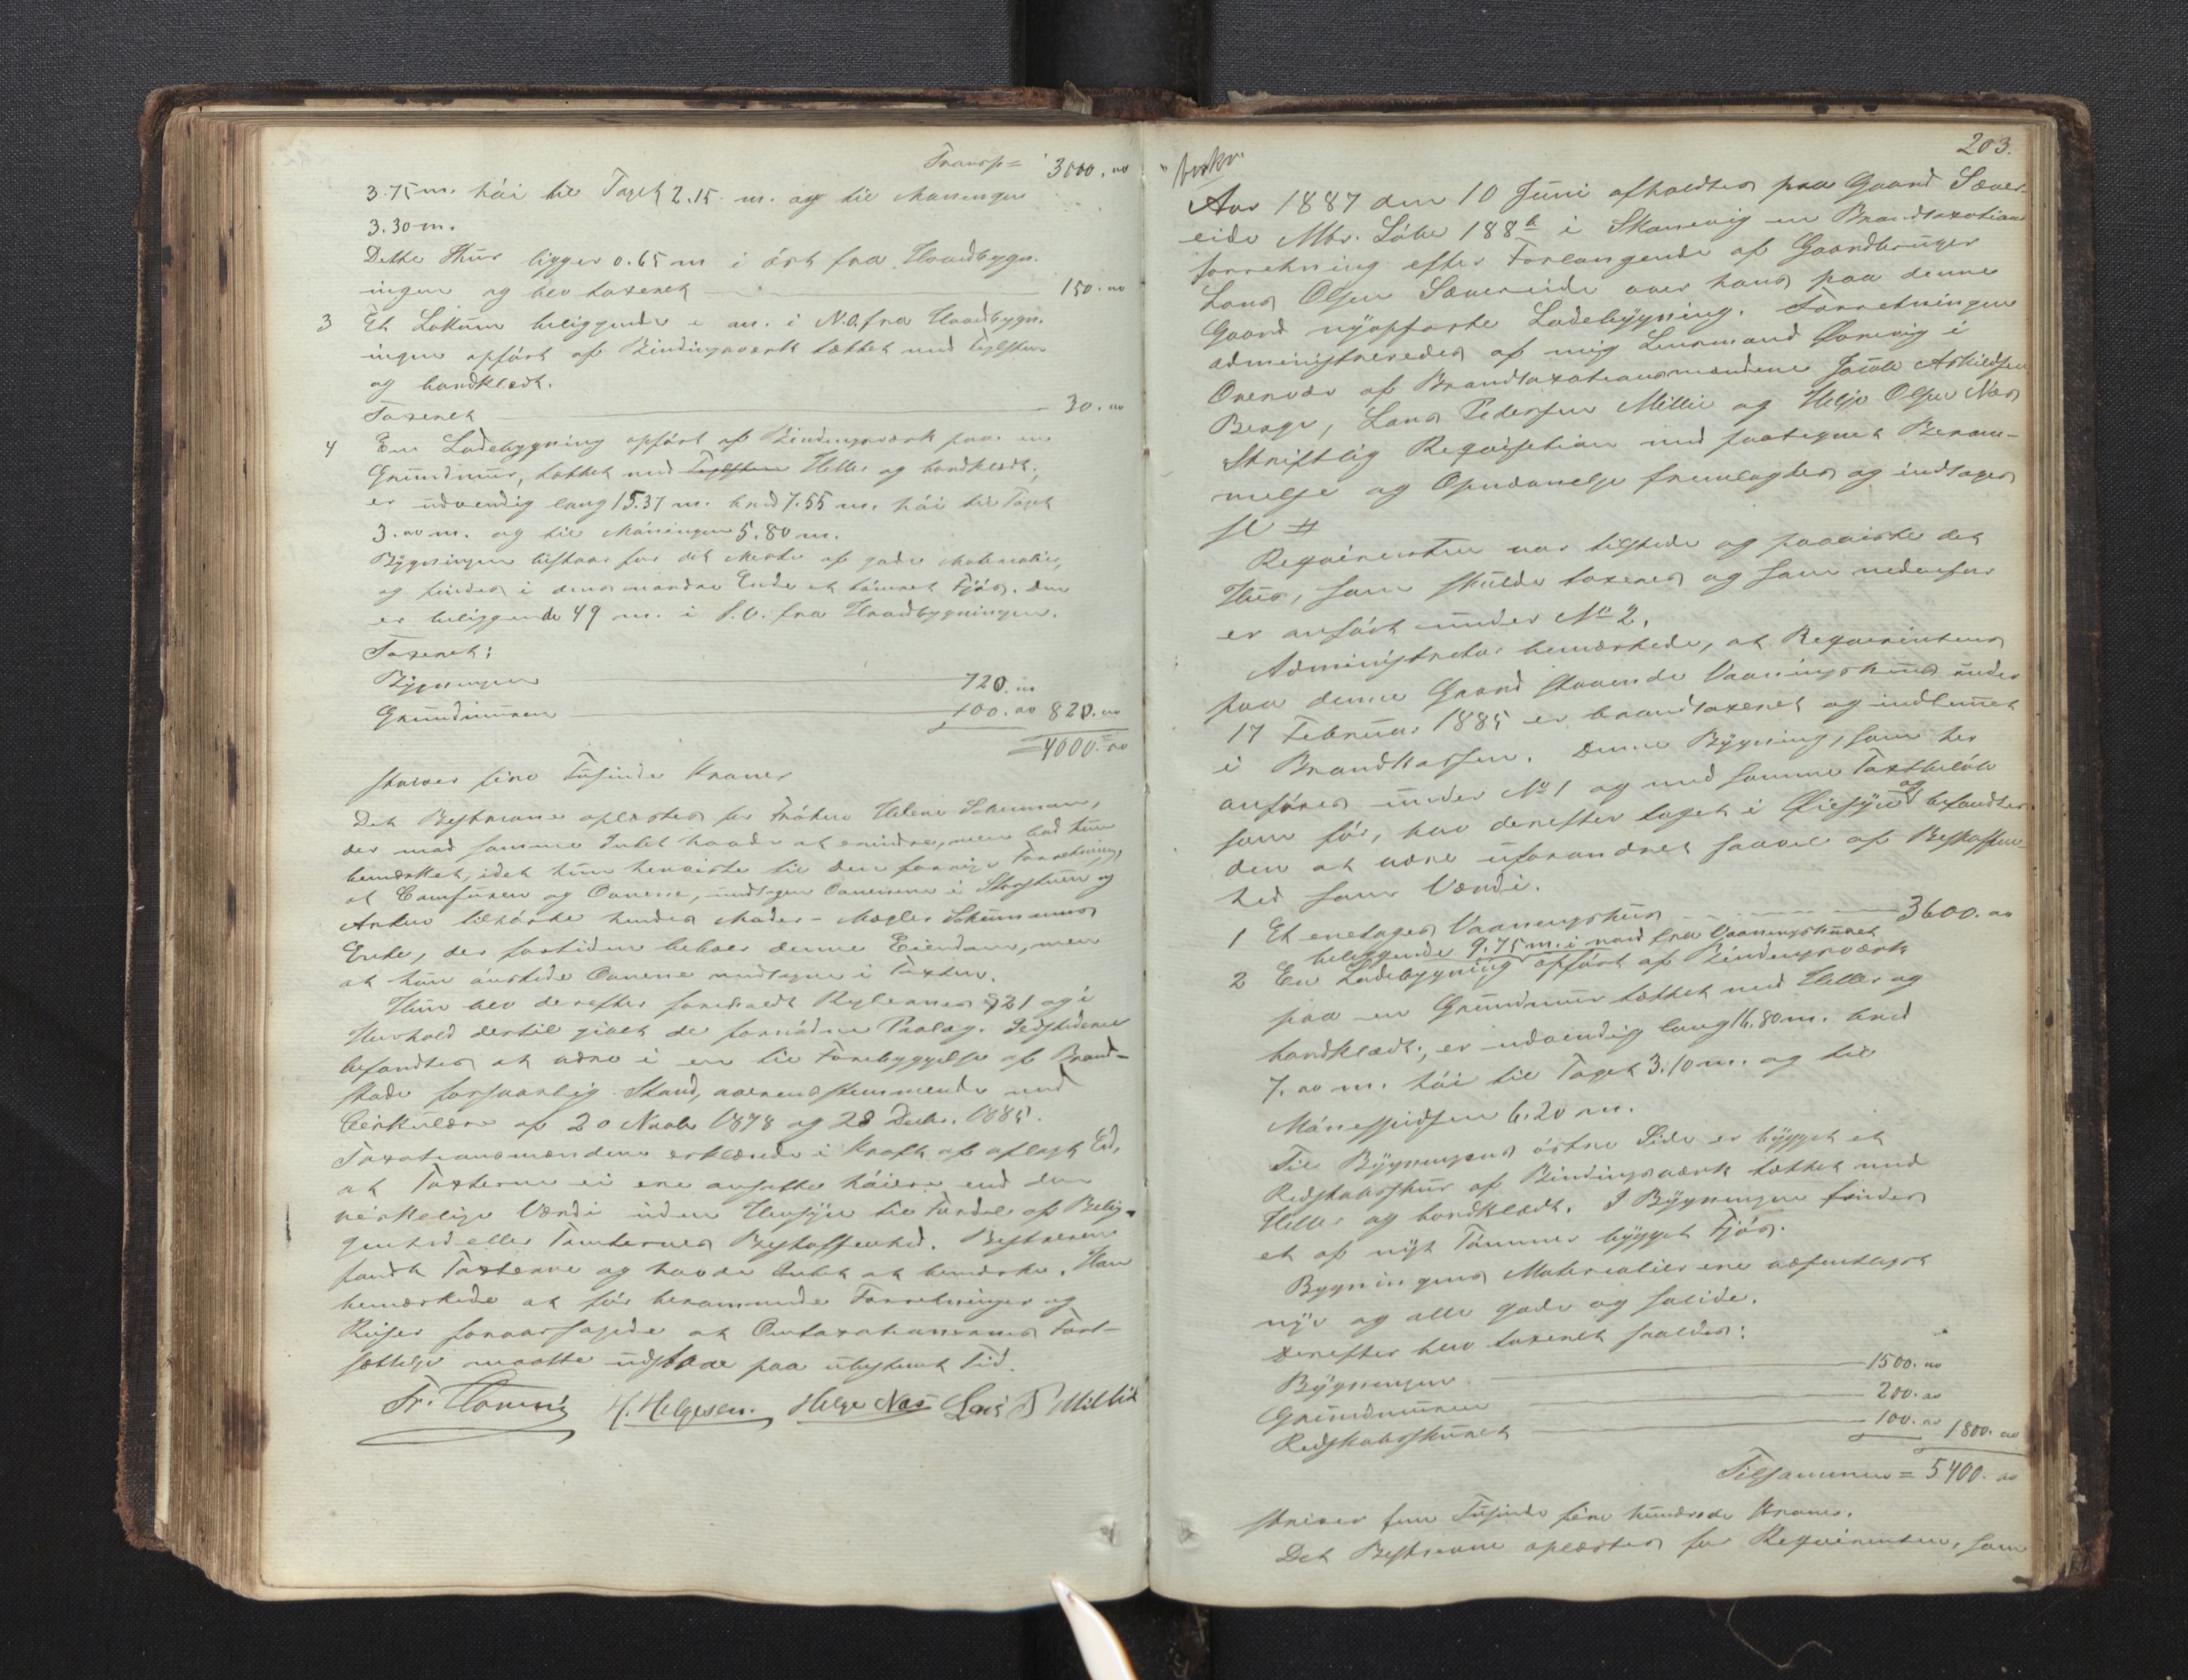 Transp = 3000.00
3.75 m. høi til Taget 2.15 m. og til Møningen
3.30 m.
Dette Skur ligger 0.65 m i øst fra Hovedbygn-
ingen og blev taxeret 150.00
3 Et Lokum beliggende m. i N.O. fra Hovedbygn-
ingen opført af Bindingsverk tækket med Taglsten
og bordklædt.
Taxeret 30.00
4 En Ladebygning opført af Bindingsværk paa en
Grundmur, tækket med Taglsten Heller og bordklædt,
er udvendig lang 15.37 m. bred 7.55 m. høi til Taget
3.00 m. og til Mønningen 5.80 m.
Bygningen bestaar for det Meste af gode Materialier,
og findes i dens nordre Ende et tømret Fjøs. Den
er beliggende 49 m. i S.V. fra Hovedbygningen.
Taxeret:
Bygningen 720.00
Grundmuren 100.00 820.00
= 4000.00
skriver fire Tusinde Kroner
Det Beskrevne oplæstes for Frøken Helene Schumann,
der mod samme Intet havde at erindre, men bad kun
bemærket, idet hun henviste til den forrige Forretning,
at Comfuren og Ovnene, undtagen Ovnene i Storstuen og
Anden tilhørte hendes Moder - Mægler Schumanns
Enke, der fortiden beboer denne Eiendom, men
at hun ønskede Ovnene medtagne i Taxten.
Hun blev derefter foreholdt Reglernes § 21 og i
Henhold dertil givet de fornødne Paalæg. Ildstederne
befandtes at være i en til Forebyggelse af Brand-
skade forsvarlig Stand, overensstemmende med
Cirkulære af 20 Novbr 1878 og 28 Decbr. 1885.
Taxationsmændene erklærede i Kraft af aflagt Ed,
at Taxterne ei ere ansatte høiere end den
virkelige Værdi uden Hensyn til Fordel af Belig-
genhed eller Tomternes Beskaffenhed. Bestyreren
fandt Taxterne og havde Intet at bemærke. Han
bemærkede at før berammede Forretninger og
Reiser foraarsagede at Omtaxationernes Fort-
sættelse maatte udstaae paa ubestemt Tid.
H. Helgesen. Helge Næs Lars P Millie
203.
Aar 1887 den 10 Juni afholdtes paa Gaard Sæver-
eide Mtr. Løbe 188 b i Skonevig en Brandtaxations
forretning efter Forlangende af Gaardbruger
Lars Olsen Sævereide over hans paa denne
Gaard nyopførte Ladebygning. Forretningen
administreredes af mig Lensmand Hornevig i
Overvær af Brandtaxationsmændene Jacob Askildsen
Berge, Lars Pedersen Millie og Helje Olsen Næs
Skriftlig Requisition med paategnet Beram-
melse og Opnævnelse fremlagdes og indtages
sl #
Requirenten var tilstede og paaviste det
Hus, som skulde taxeres og som nedenfor
er anført under No 2.
Administrator bemærkede, at Requirentens
paa denne Gaard staaende Vaaningshus under
17 Februar 1885 er brandtaxeret og indlemmet
i Brandkassen. Denne Bygning, som her
anføres under No 1 og med samme Taxtbeløb
som før, blev derefter taget i Øiesyn og befandtes
den at være uforandret saavel af Beskaffen-
hed som Værdi.
1 Et enetages Vaaningshus 3600.00
beliggende 9.75 m. i nord fra Vaaningshuset
2 En Ladebygning opført af Bindingsværk
paa en Grundmur tækket med Heller og
bordklædt, er udvendig lang 16.80 m. bred
7.00 m. høi til Taget 3.10 m. og til
Mønespidsen 6.20 m.
Til Bygningens østre Side er bygget et
Redskabsskur af Bindingsværk tækket med
Heller og bordklædt. I Bygningen findes
et af nyt Tømmer bygget Fjøs.
Bygningens Materialier ere væsentligst
nye og alle gode og solide.
Derefter blev taxeret saaledes:
Bygningen 1500.00
Grundmuren 200.00
Redskabsskuret 100.00 1800.00
Tilsammen = 5400.00
skriver fem Tusinde fire hundrede Kroner.
Det Beskrevne oplæstes for Requirenten, som